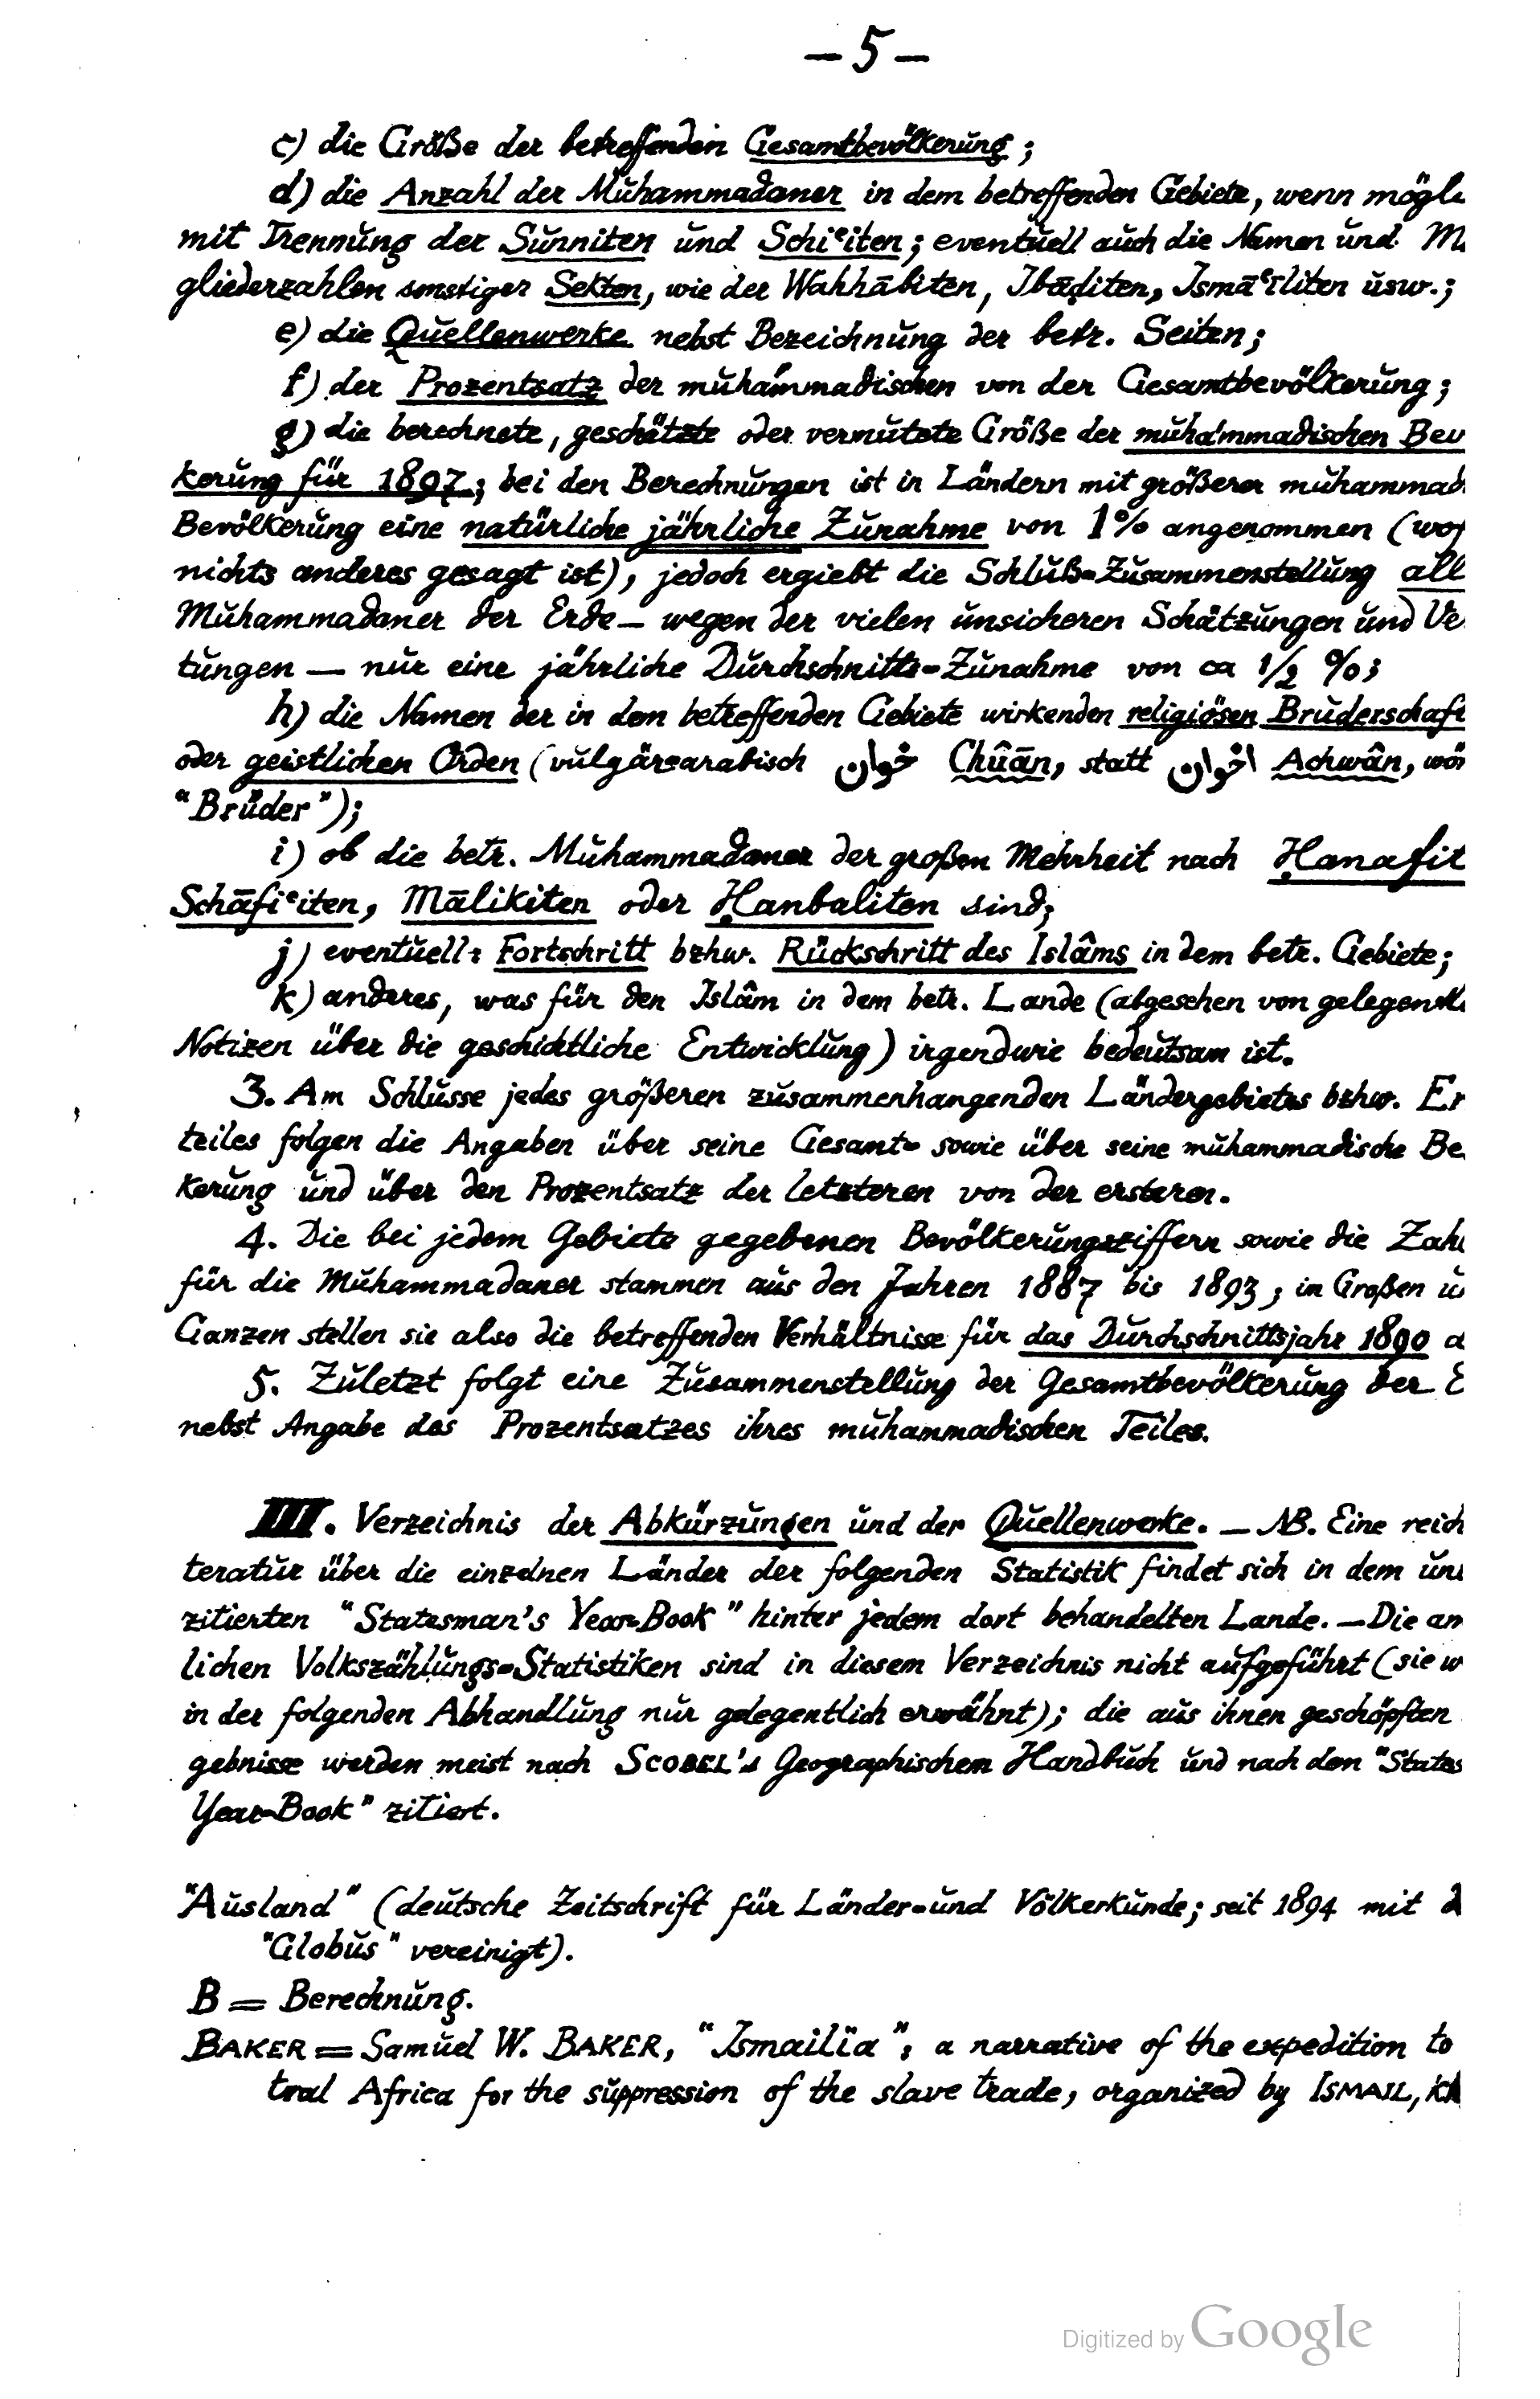 — 5 —
c) die Größe der betreffenden Gesamtbevölkerung;
d) die Anzahl der Muhammadaner in dem betreffenden Gebiete, wenn mögl
mit Trennung der Sunniten und Schiʿiten; eventuell auch die Namen und M
gliederzahlen sonstiger Sekten, wie der Wahhābiten, Ibāḍiten, Ismāʿīliten usw.;
e) die Quellenwerke nebst Bezeichnung der betr. Seiten;
f) der Prozentsatz der muhammadischen von der Gesamtbevölkerung;
g) die berechnete, geschätzte oder vermutete Größe der muhammadischen Bev
kerung für 1897; bei den Berechnungen ist in Ländern mit größerer muhammad
Bevölkerung eine natürliche jährliche Zunahme von 1% angenommen (wo
nichts anderes gesagt ist), jedoch ergiebt die Schluß-Zusammenstellung all
Muhammadaner der Erde — wegen der vielen unsicheren Schätzungen und Ve
tungen — nur eine jährliche Durchschnitts-Zunahme von ca 1/2 %;
h) die Namen der in dem betreffenden Gebiete wirkenden religiösen Bruderschaft
oder geistlichen Orden (vulgär-arabisch خوان Chûān, statt اخوان Achwân, wör
"Brüder");
i) ob die betr. Muhammadaner der großen Mehrheit nach Ḥanafit
Schāfiʿiten, Mālikiten oder Ḥanbaliten sind;
j) eventuell: Fortschritt bzhw. Rückschritt des Islâms in dem betr. Gebiete;
k) anderes, was für den Islâm in dem betr. Lande (abgesehen von gelegentl
Notizen über die geschichtliche Entwicklung) irgendwie bedeutsam ist.
3. Am Schlusse jedes größeren zusammenhangenden Ländergebietes bzhw. Er
teiles folgen die Angaben über seine Gesamt- sowie über seine muhammadische Be
kerung und über den Prozentsatz der letzteren von der ersteren.
4. Die bei jedem Gebiete gegebenen Bevölkerungsziffern sowie die Zahl
für die Muhammadaner stammen aus den Jahren 1887 bis 1893; im Großen u
Ganzen stellen sie also die betreffenden Verhältnisse für das Durchschnittsjahr 1890 d
5. Zuletzt folgt eine Zusammenstellung der Gesamtbevölkerung der E
nebst Angabe des Prozentsatzes ihres muhammadischen Teiles.
III. Verzeichnis der Abkürzungen und der Quellenwerke. — NB. Eine reich
teratur über die einzelnen Länder der folgenden Statistik findet sich in dem un
zitierten "Statesman's Year-Book" hinter jedem dort behandelten Lande. — Die am
lichen Volkszählungs-Statistiken sind in diesem Verzeichnis nicht aufgeführt (sie w
in der folgenden Abhandlung nur gelegentlich erwähnt); die aus ihnen geschöpften
gebnisse werden meist nach SCOBEL's Geographischem Handbuch und nach dem "States
Year-Book" zitiert.
"Ausland" (deutsche Zeitschrift für Länder- und Völkerkunde; seit 1894 mit d
"Globus" vereinigt).
B = Berechnung.
BAKER = Samuel W. BAKER, "Ismailïa", a narrative of the expedition to
tral Africa for the suppression of the slave trade, organized by ISMAIL, Kh
Digitized by Google